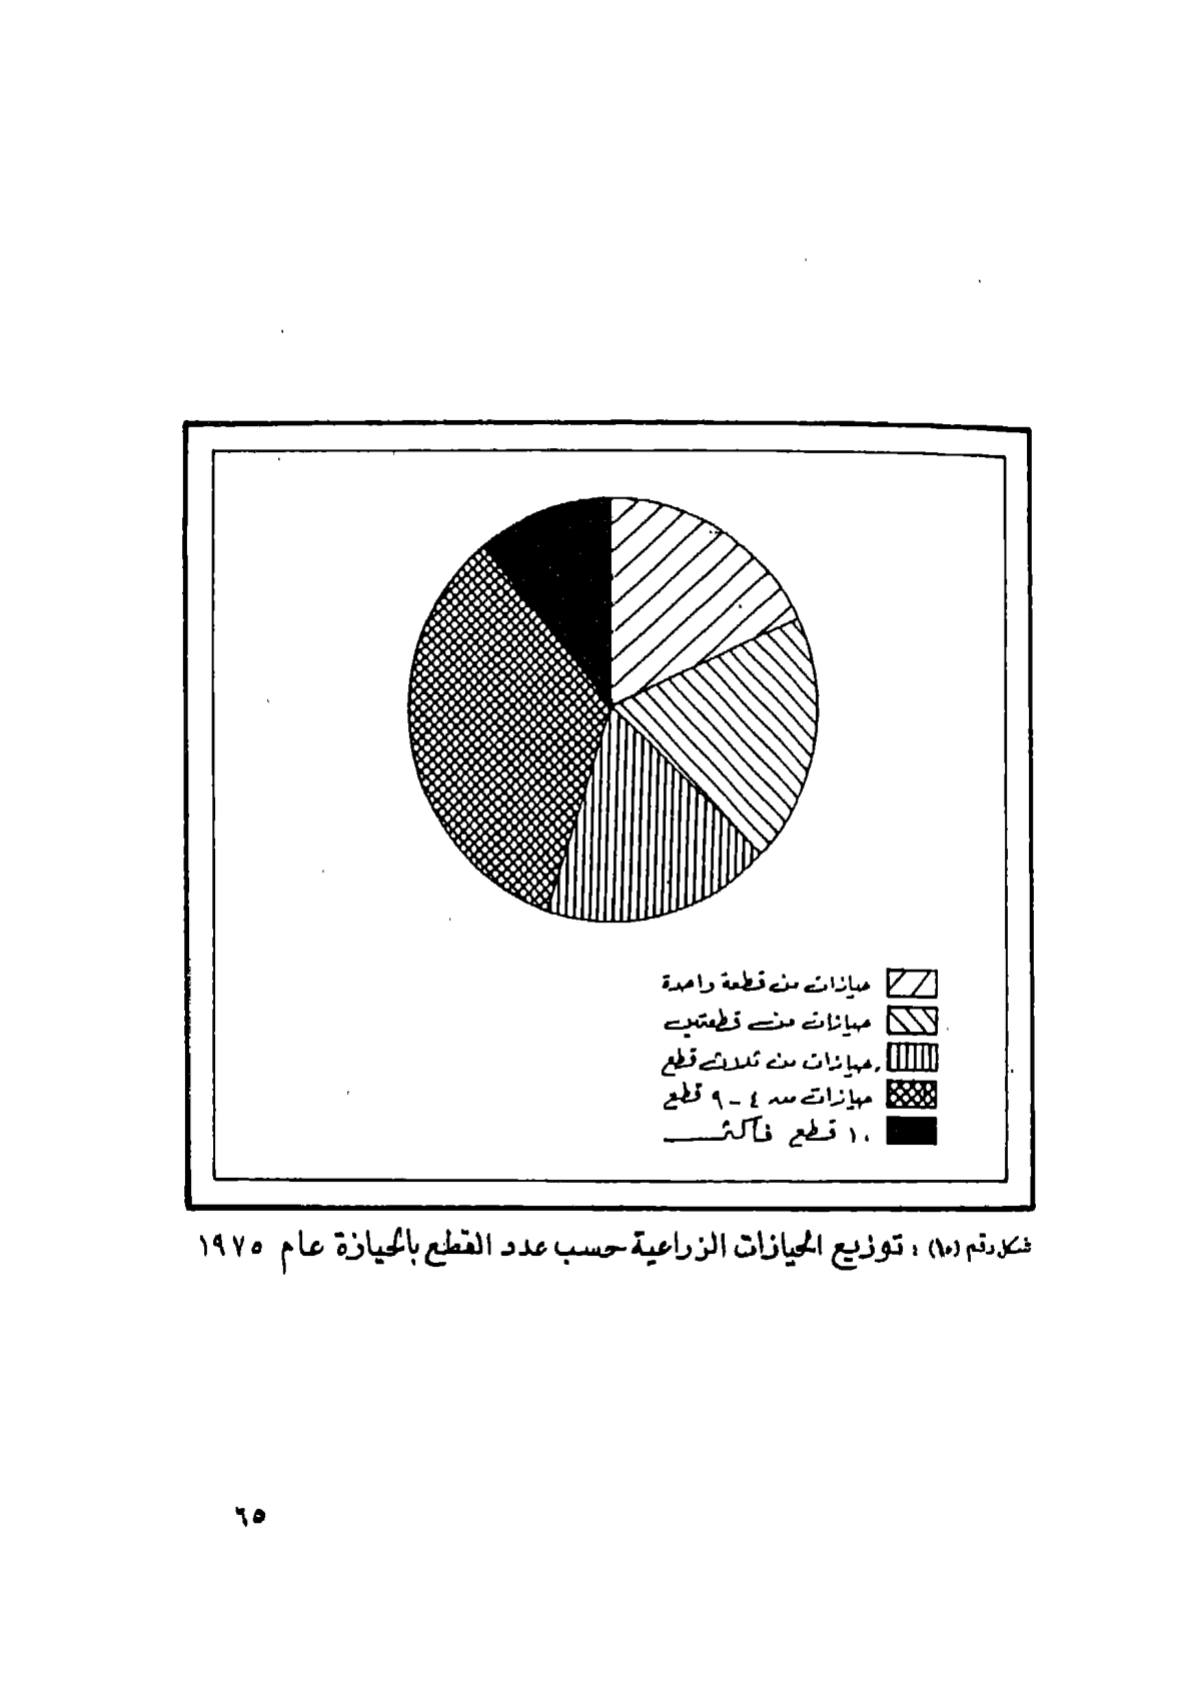 حيازات من قطعة واحدة
حيازات من قطعتين
حيازات من ثلاث قطع
حيازات من ٤ - ٩ قطع
١٠ قطع فأكثر
شكل رقم (١٥) : توزيع الحيازات الزراعية حسب عدد القطع بالحيازة عام ١٩٧٥
٦٥